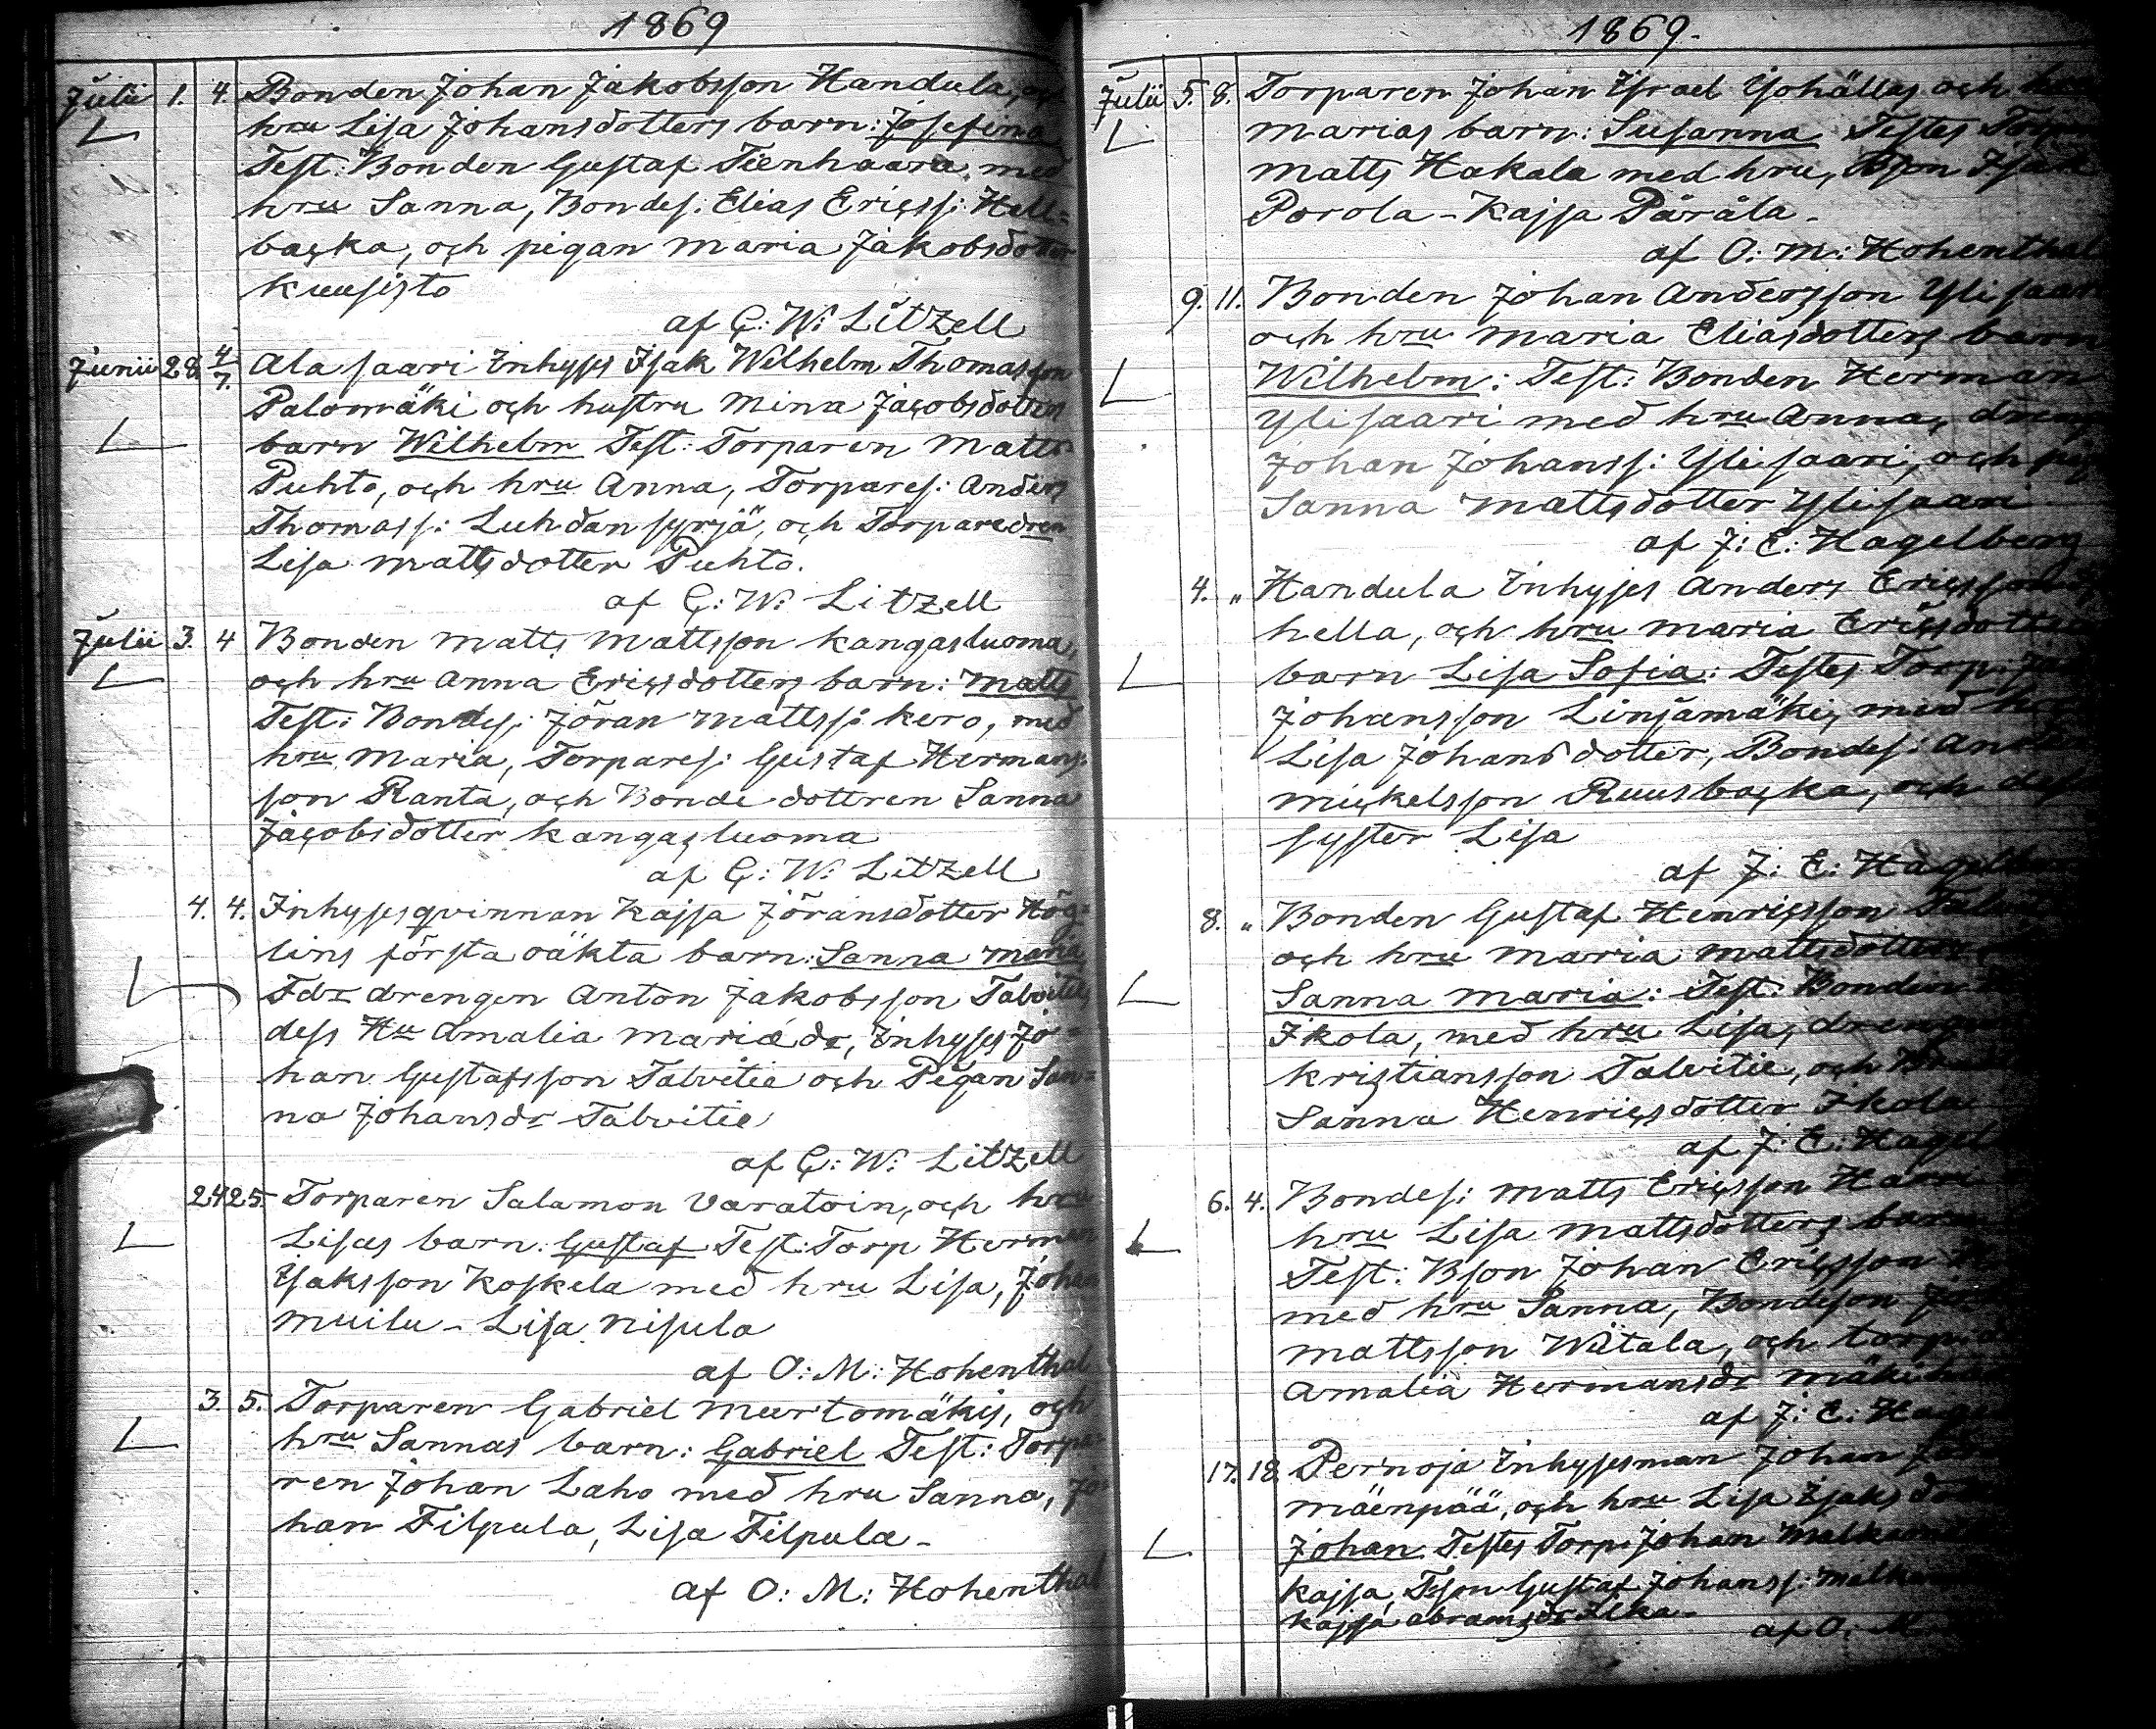 1869
Julii 1. 4. Bonden Johan Jakobsson Handula, och
hru Lisa Johansdotters barn: Josefina
Test: Bonden Gustaf Tienhaara, med
hru Sanna, Bondes: Elias Ericss: Hell-
backa, och pigan Maria Jakobsdotter
Kuusisto
af G: W: Litzell
Junii 28. 4/7. Ala saari Inhyses Isak Wilhelm Thomasson
Palomäki och hustru Mina Jacobsdotters
barn Wilhelm Test: Torparen Matts
Puhto, och hru Anna, Torpares: Anders
Thomass: Luhdan syrjä, och Torparedren
Lisa Mattsdotter Puhto.
af G: W: Litzell
Julii 3. 4 Bonden Matts Mattsson Kangasluoma,
och hru Anna Ericsdotters barn: Matts
Test: Bondes: Jöran Mattss: Kero, med
hru Maria, Torpares: Gustaf Hermans-
son Ranta, och Bonde dottren Sanna
Jacobsdotter Kangasluoma
af G: W: Litzell
4. 4. Inhysesqvinnan Kajsa Jöransdotter Hög-
lins första oäkta barn: Sanna Maria
Fdr drengen Anton Jakobsson Talvitie,
dess Hu Amalia Mariä dr, Inhyses Jo-
han Gustafsson Talvitie och Pigan San-
na Johansdr Talvitie
af G: W: Litzell
24 25. Torparen Salamon Varatoin, och hru
Lisas barn: Gustaf Test: Torp Herman
Isaksson Koskela med hru Lisa, Johan
Muilu - Lisa Nisula
af O: M: Hohenthal
3. 5. Torparen Gabriel Murtomäkis, och
hru Sannas barn: Gabriel Test: Torpa-
ren Johan Laho med hru Sanna, Jo-
han Filpula, Lisa Filpula -
af O: M: Hohenthal
1869.
Julii 5. 8. Torparen Johan Israel Ysohällas och hru
Marias barn: Susanna Testes
Matts Hakala med hru, Bson Isak
Porola - Kajsa Päräla -
af O: M: Hohenthal
9. 11. Bonden Johan Andersson Ylisaari
och hru Maria Eliasdotters barn
Wilhelm: Test: Bonden Herman
Ylisaari med hru Anna, dreng
Johan Johanss: Ylisaari, och pig
Sanna Mattsdotter Ylisaari
af J: E: Hagelberg
4. " Handula Inhyses Anders Ericsson
hella, och hru Maria Ericsdotters
barn Lisa Sofia: Testes Torp:
Johansson Linjamäki, med hru
Lisa Johansdotter, Bondes:
Mickelsson Ruusbacka, och dess
syster Lisa
af J: E:
8. " Bonden Gustaf Henricsson
och hru Maria Mattsdotters
Sanna Maria: Test: Bonden
Ikola, med hru Lisa, drengen
Kristiansson Talvitie, och
Sanna Henricsdotter Ikola
af J: E:
6. 4. Bondes: Matts Ericsson Harri
hru Lisa Mattsdotters barn
Test: Bson Johan Ericsson
med hru Sanna, Bondeson
Mattsson Witala, och torp
Amalia Hermansdr
af J: E:
17. 18 Pernoja Inhysesman Johan
Mäenpää, och hru Lisa Isaks
Johan. Testes Torp: Johan
Kajsa, Tson Gustaf Johanss:
Kajsa Abramsdr
af O: M